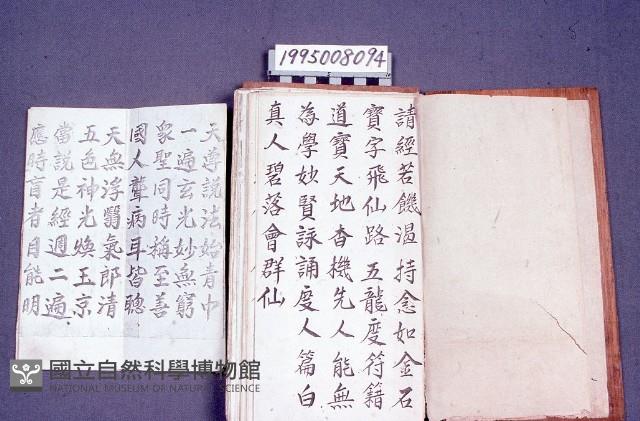 1995008094
請經若饑渴持念如金石
寶字飛仙路五龍度符籍
道寶天地杳機先人能無
為學妙賢詠誦度人篇白
真人碧落會群仙
天尊說法始青中
一遍玄光妙無窮
眾聖同時稱至善
國人聾病耳皆聰
天無浮翳氣郎清
五色神光煥玉京
當說是經週二遍
應時盲者目能明
國立自然科學博物館
NATIONAL MUSEUM OF NATURAL SCIENCE